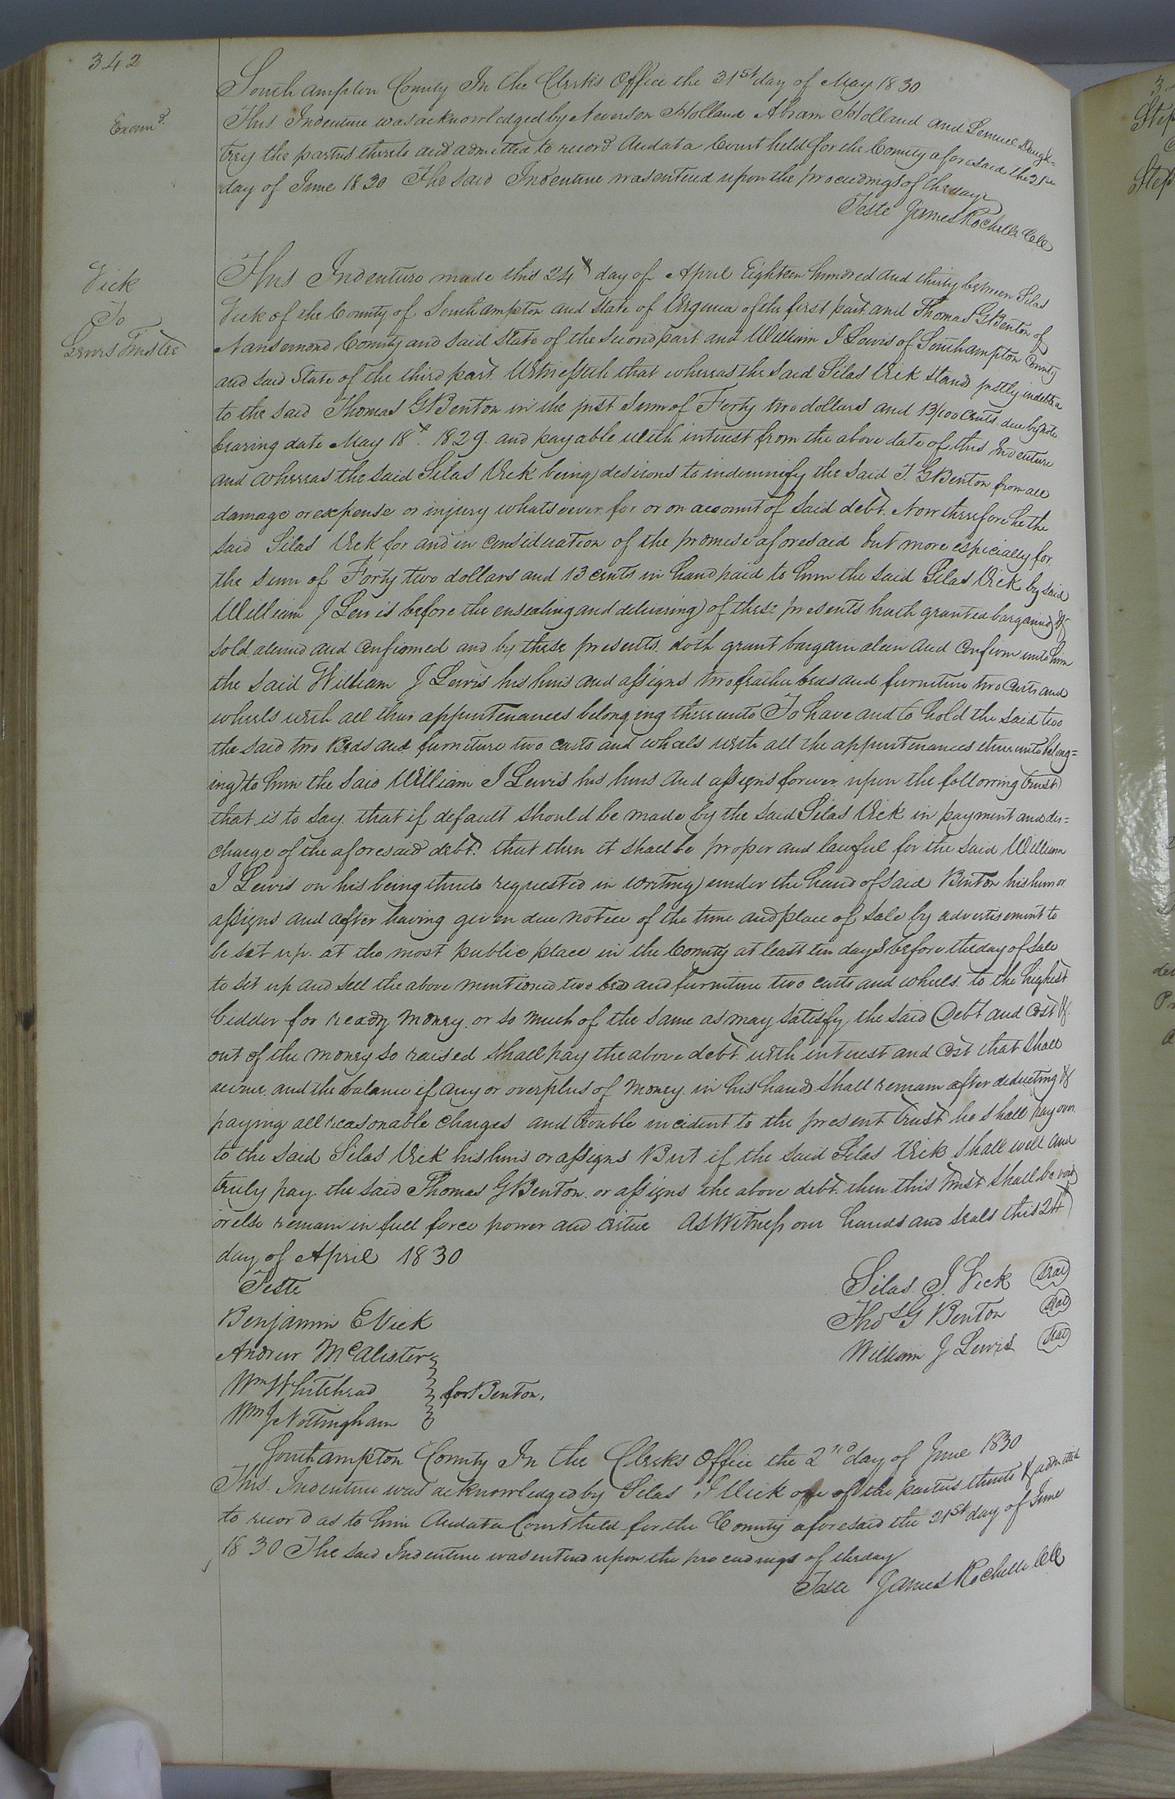 342
Southampton County In the Clerks Office the 31st day of May 1830
Examd.
This Indenture was acknowledged by Newsom Holland Abram Holland and Lemuel Daugh-
trey the parties thereto and admitted to record And at a Court held for the County aforesaid the 21st
day of June 1830 The said Indenture was entered upon the proceedings of the day
Teste James Rochelle Clk
Vick
To
Lewis Trustee
This Indenture made this 24th day of April Eighteen hundred and thirty between Silas
Vick of the County of Southampton and State of Virginia of the first part and Thomas G Benton of
Nansemond County and said State of the second part and William J Lewis of Southampton County
and said State of the third part. Witnesseth that whereas the said Silas Vick stand justly indebted
to the said Thomas G Benton in the just sum of Forty two dollars and 13/100 Cents due by note
bearing date May 18th 1829. and payable with interest from the above date of this Indenture
and whereas the said Silas Vick being desirous to indemnify the said T. G Benton from all
damage or expense or injury whatsoever for or on account of said debt. Now therefore he the
said Silas Vick for and in consideration of the promise aforesaid but more especially for
the sum of Forty two dollars and 13 cents in hand paid to him the said Silas Vick by said
William J Lewis before the ensealing and delivering of these presents hath granted bargained &
sold aliend and confirmed and by these presents doth grant bargain alien and Confirm unto him
the said William J Lewis his heirs and assigns two feather beds and furniture two Carts and
wheels with all their appurtenances belonging thereunto To have and to hold the said two
the said two Beds and furniture two carts and wheels with all the appurtenances thereunto belong=
ing to him the said William J Lewis his heirs and assigns forever upon the following trust
that is to say that if default should be made by the said Silas Vick in payment and dis=
charge of the aforesaid debt. that then it shall be proper and lawful for the said William
J Lewis on his being thereto requested in writing under the hand of said Benton his heirs or
assigns and after having given due notice of the time and place of sale by advertisement to
be set up at the most public place in the County at least ten days before the day of sale
to set up and sell the above mentioned two beds and furniture two carts and wheels to the highest
bidder for ready money or so much of the same as may satisfy the said Debt and Cost &
out of the money so raised shall pay the above debt with interest and Cost that shall
accrue and the balance if any or overplus of money in his hands shall remain after deducting &
paying all reasonable charges and trouble incident to the present trust he shall pay over
to the said Silas Vick his heirs or assigns But if the said Silas Vick shall well and
truly pay the said Thomas G Benton or assigns the above debt then this trust shall be void
or else remain in full force power and virtue As Witness our hands and seals this 24th
day of April 1830
Teste
Silas J. Vick Seal
Benjamin E Vick
Thos G Benton Seal
Andrew McAlister
William J Lewis Seal
Wm Whitehead
for Benton.
Wm J Nottingham
Southampton County In the Clerks Office the 2nd day of June 1830
This Indenture was acknowledged by Silas J Vick one of the parties thereto & admitted
to record as to him And at a Court held for the County aforesaid the 21st day of June
1830 The said Indenture was entered upon the proceedings of the day
Teste James Rochelle Clk